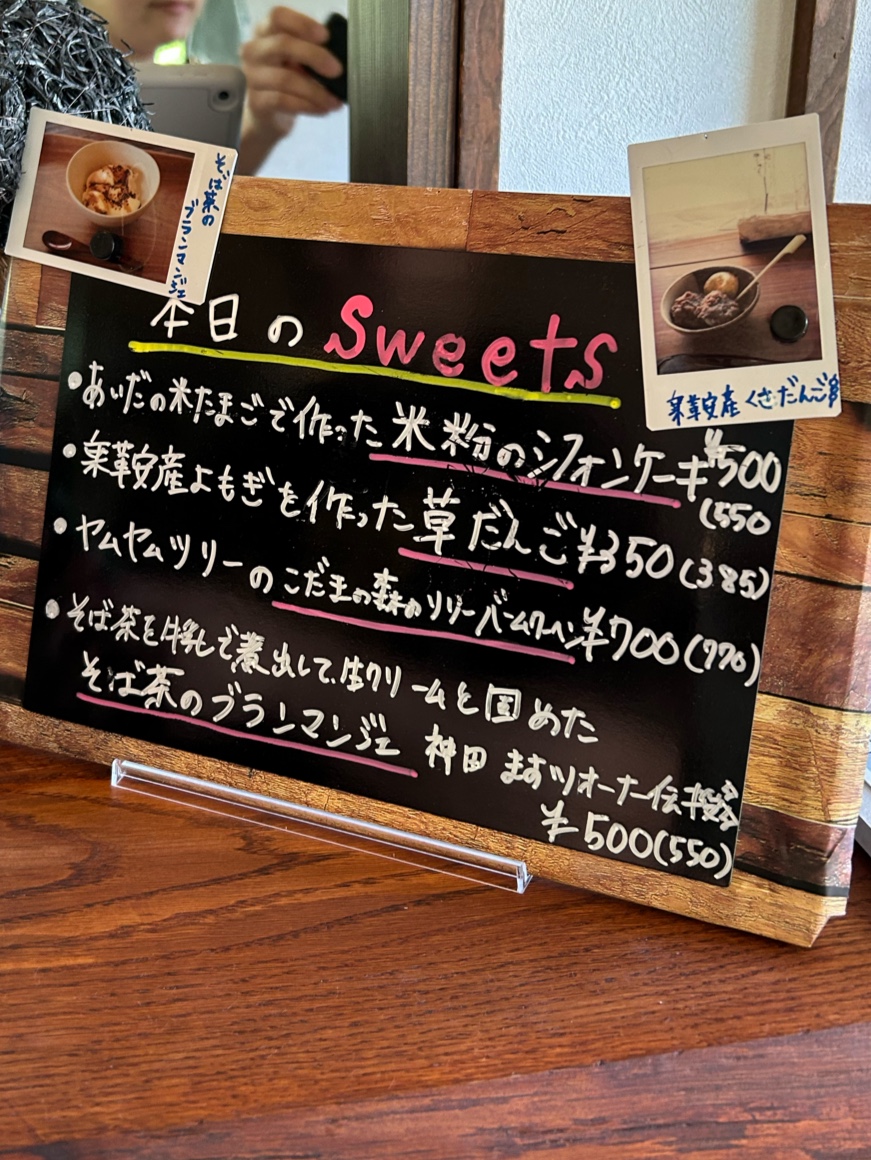 そば茶の
ブランマンジェ
本日の Sweets
• あいだの米たまごで作った米粉のシフォンケーキ ¥500
(550
• 栗駒産よもぎを作った草だんご ¥350(385)
• ヤムヤムツリーのこだまの森のツリーバームクーヘン ¥700(770)
• そば茶を牛乳で煮出して、生クリームと固めた
そば茶のブランマンジェ 神田 ますツオーナー伝授
¥500(550)
産くさだんご